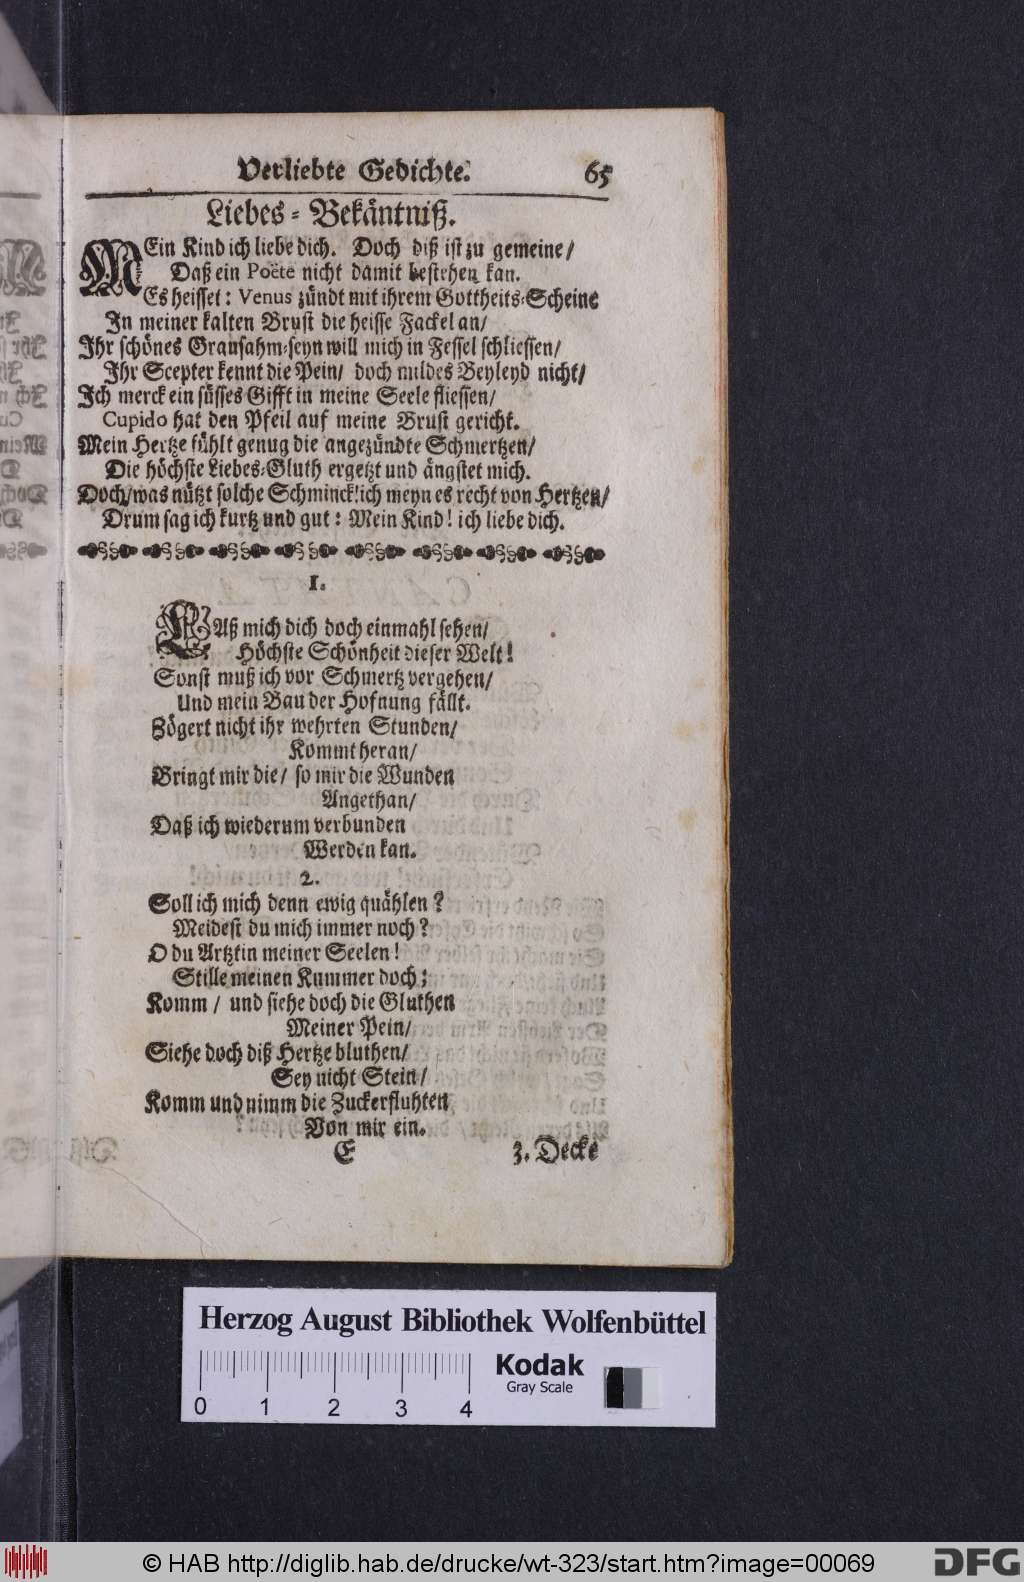 Verliebte Gedichte. 65
Liebes-Bekäntniß.
MEin Kind ich liebe dich. Doch diß ist zu gemeine/
Daß ein Poëte nicht damit bestehen kan.
Es heisset: Venus zündt mit ihrem Gottheits-Scheine
In meiner kalten Brust die heisse Fackel an/
Ihr schönes Grausahm-seyn will mich in Fessel schliessen/
Ihr Scepter kennt die Pein/ doch mildes Beyleyd nicht/
Ich merck ein süsses Gifft in meine Seele fliessen/
Cupido hat den Pfeil auf meine Brust gericht.
Mein Hertze fühlt genug die angezündte Schmertzen/
Die höchste Liebes-Gluth ergetzt und ängstet mich.
Doch/was nützt solche Schminck!ich meyn es recht von Hertzen/
Drum sag ich kurtz und gut: Mein Kind! ich liebe dich.
1.
LAß mich dich doch einmahl sehen/
Höchste Schönheit dieser Welt!
Sonst muß ich vor Schmertz vergehen/
Und mein Bau der Hofnung fällt.
Zögert nicht ihr wehrten Stunden/
Kommt heran/
Bringt mir die/ so mir die Wunden
Angethan/
Daß ich wiederum verbunden
Werden kan.
2.
Soll ich mich denn ewig quählen?
Meidest du mich immer noch?
O du Artztin meiner Seelen!
Stille meinen Kummer doch;
Komm/ und siehe doch die Gluthen
Meiner Pein/
Siehe doch diß Hertze bluthen/
Sey nicht Stein/
Komm und nimm die Zuckerfluhten
Von mir ein.
E 3. Decke
Herzog August Bibliothek Wolfenbüttel
Kodak
Gray Scale
0 1 2 3 4
© HAB http://diglib.hab.de/drucke/wt-323/start.htm?image=00069
DFG